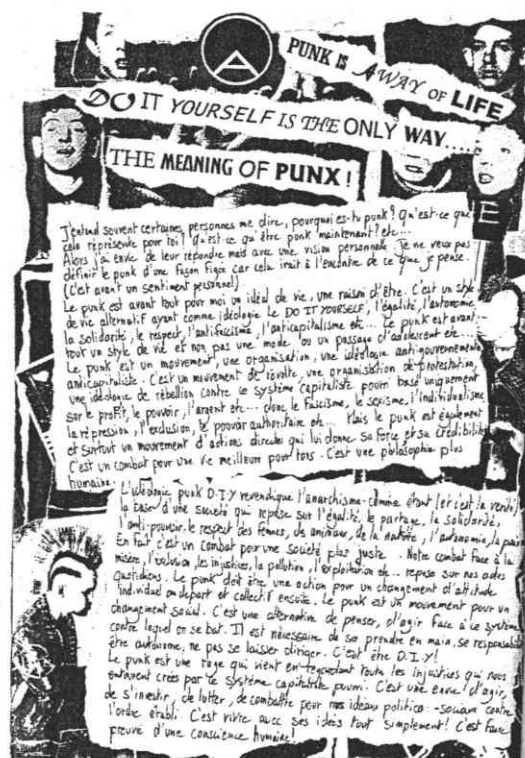 PUNK IS A WAY OF LIFE
DO IT YOURSELF IS THE ONLY WAY.....
THE MEANING OF PUNX !
J'entend souvent certaines personnes me dire, pourquoi es-tu punk ? Qu'est-ce que
cela représente pour toi ? Qu'est-ce qu'être punk maintenant ? etc...
Alors j'ai envie de leur répondre mais avec une vision personnelle. Je ne veux pas
définir le punk d'une façon figée car cela irait à l'encontre de ce que je pense.
(C'est avant un sentiment personnel).
Le punk est avant tout pour moi un idéal de vie, une raison d'être. C'est un style
de vie alternatif ayant comme idéologie le DO IT YOURSELF, l'égalité, l'autonomie,
la solidarité, le respect, l'antifascisme, l'anticapitalisme etc... Le punk est avant
tout un style de vie et non pas une mode ou un passage d'adolescent etc...
Le punk est un mouvement, une organisation, une idéologie antigouvernementale
anticapitaliste. C'est un mouvement de révolte, une organisation de protestation,
une idéologie de rebellion contre ce système capitaliste pourri basé uniquement
sur le profit, le pouvoir, l'argent etc... donc le fascisme, le sexisme, l'individualisme
la répression, l'exclusion, le pouvoir authoritaire etc... Mais le punk est également
et surtout un mouvement d'actions directes qui lui donne sa force et sa crédibilité
C'est un combat pour une vie meilleure pour tous. C'est une philosophie plus
humaine.
L'idéologie punk D.I.Y revendique l'anarchisme comme étant (et c'est la vérité)
la base d'une société qui repose sur l'égalité, le partage, la solidarité,
l'anti-pouvoir, le respect des femmes, des animaux, de la nature, l'autonomie, la
En fait c'est un combat pour une société plus juste. Notre combat face à la
misère, l'exclusion, les injustices, la pollution, l'exploitation etc... repose sur nos actes
quotidiens. Le punk doit être une action pour un changement d'attitude
individuel au départ et collectif ensuite. Le punk est un mouvement pour un
changement social. C'est une alternative de penser, d'agir face à ce système
contre lequel on se bat. Il est nécessaire de se prendre en main, se responsabiliser
être autonome, ne pas se laisser diriger. C'est être D.I.Y!
Le punk est une rage qui vient en regardant toute les injustices qui nous
entourent crées par ce système capitaliste pourri. C'est une envie d'agir,
de s'investir, de lutter, de combattre pour nos ideaux politico-sociaux contre
l'ordre établi. C'est vivre avec ses idées tout simplement! C'est faire
preuve d'une conscience humaine!